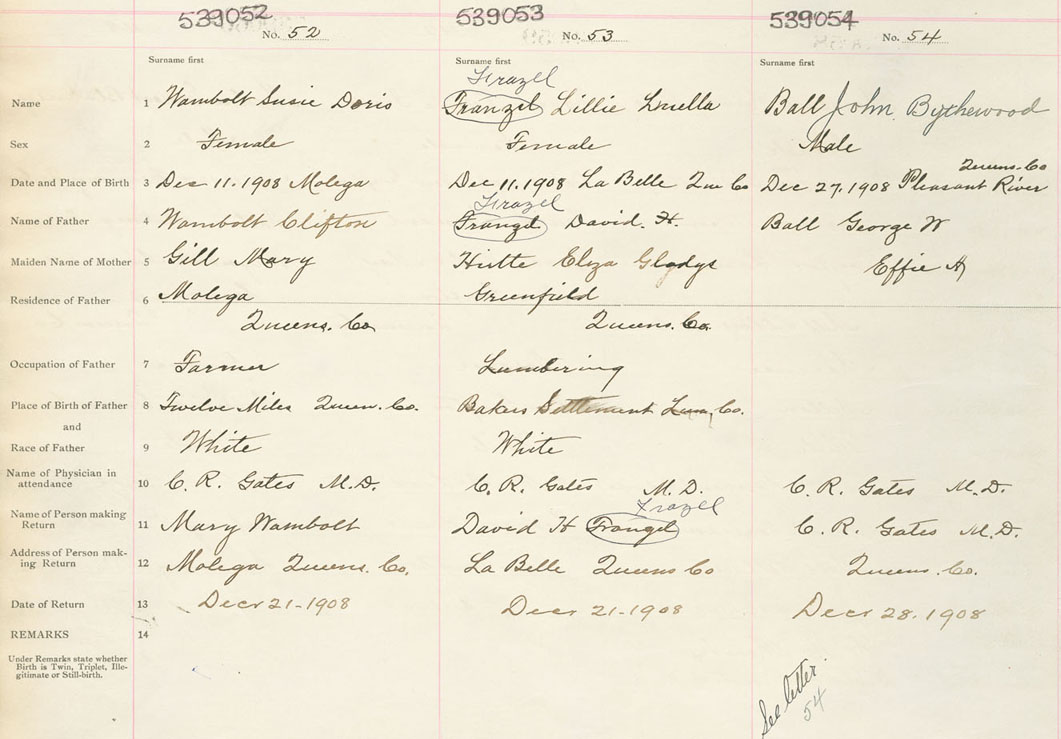 539052 539053 539054
No. 52 No. 53 No. 54
Surname first Surname first Surname first
Name 1 Wambolt Susie Doris Franzel Lillie Luella Ball John Bythewood
Sex 2 Female Female Male
Queens. Co
Date and Place of Birth 3 Dec 11. 1908 Molega Dec 11. 1908 La Belle Que Co Dec 27, 1908 Pleasant River
Name of Father 4 Wambolt Clifton David. H. Ball George W
Maiden Name of Mother 5 Gill Mary Eliza Gladys Effie A
Residence of Father 6 Molega Greenfield
Queens. Co Queens. Co.
Occupation of Father 7 Farmer Lumbering
Place of Birth of Father 8 Twelve Miles Queen. Co. Bakers Settlement Lun. Co.
and
Race of Father 9 White White
Name of Physician in
attendance 10 C. R. Gates M.D. C. R. Gates M.D. C. R. Gates M.D.
Frazel
Name of Person making
Return 11 Mary Wambolt David H Frangel C. R. Gates M.D.
Address of Person mak-
ing Return 12 Molega Queens. Co. La Belle Queens Co Queens. Co.
Date of Return 13 Decr 21-1908 Decr 21-1908 Decr 28. 1908
REMARKS 14
Under Remarks state whether
Birth is Twin, Triplet, Ille-
gitimate or Still-birth.
See letter
54